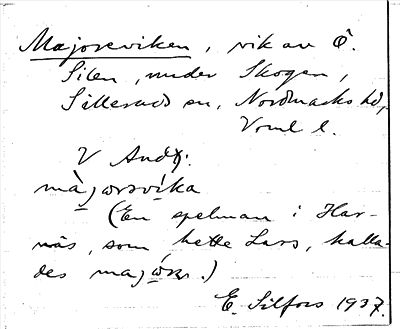 Majorsviken, vik av Ö.
Silen, under Skogen,
Silleruds sn, Nordmarks hd,
Vrml l.
V Andf:
màjorsvíka
(En spelman i Har-
näs, som hette Lars, kalla-
des majorn.)
E. Silfors 1937.